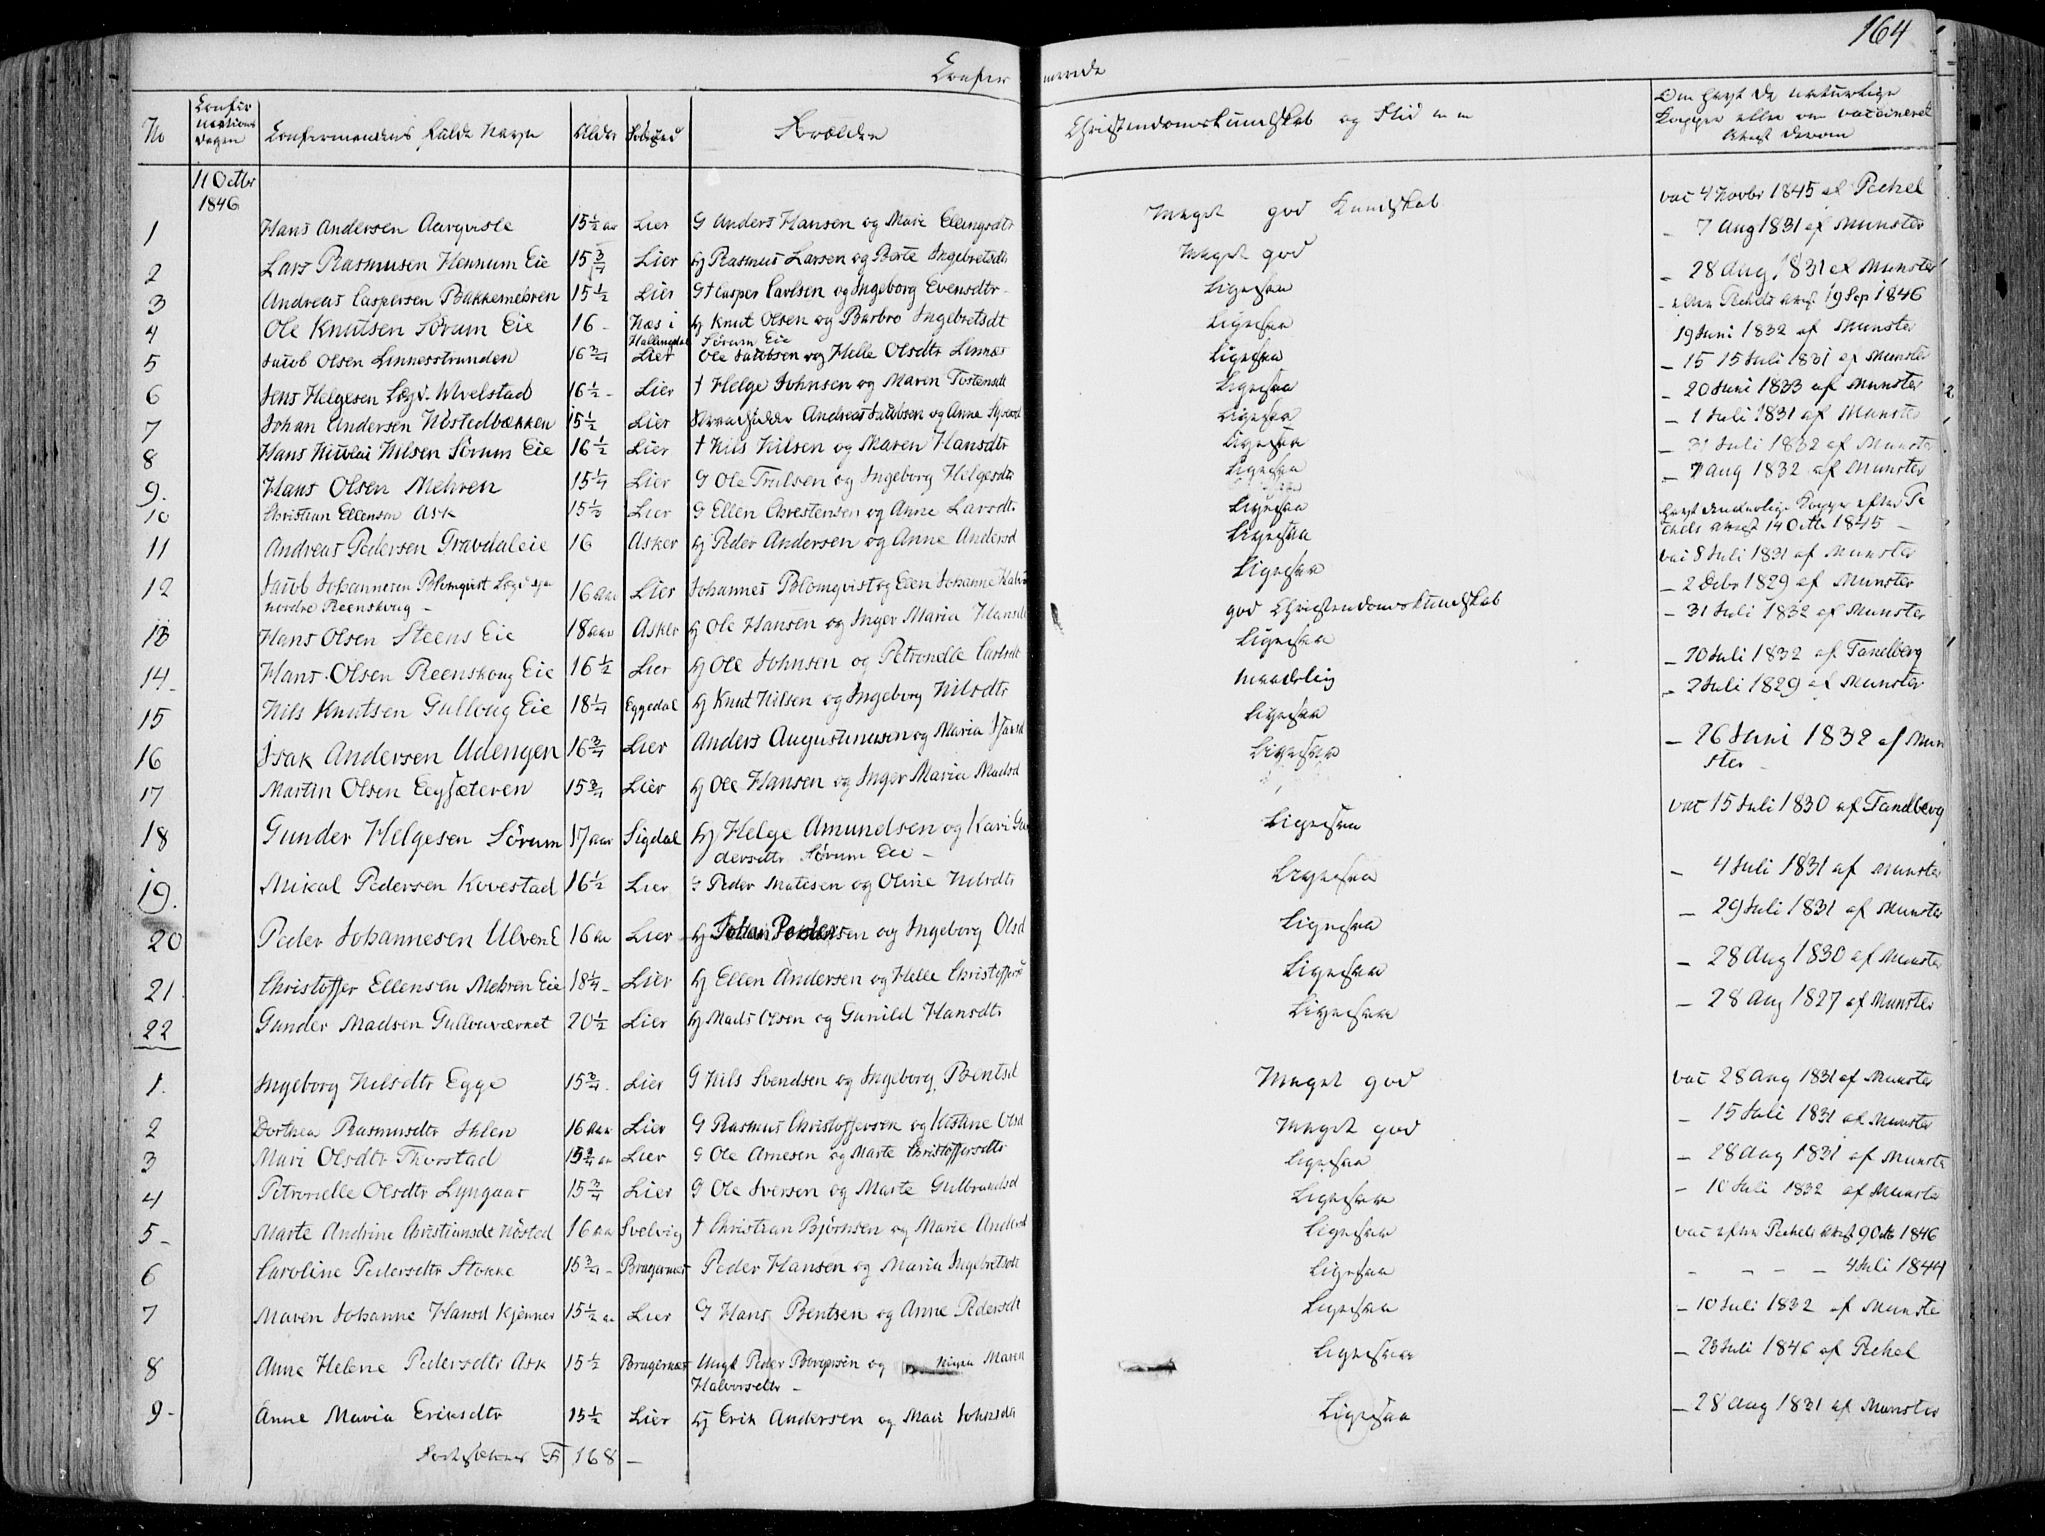 164
Confirmerede
No
Confirmations Dagen
Confirmandens fulde Navn
Alder
Fødested
Forældre
Christendomskundskab og Flid m m
Om havt de naturlige Kopper eller om vaccineret Attest derom
11 Octbr 1846
1 Hans Andersen 15 1/2 aar Lier G Anders Hansen og Mari Ellingsdtr Meget god Kundskab vac 4 Novbr 1845 af Pechel
2 Lars Rasmusen Hennum Eie 15 3/4 Lier Hj Rasmus Larsen og Berte Ingebretsdt Meget god - 7 Aug 1831 af Munster
3 Andreas Caspersen Bakkemehren 15 1/2 Lier G † Casper Carlsen og Ingeborg Evensdtr Ligesaa - 28 Aug 1831 af Munster
4 Ole Knutsen Sørum Eie 16 - Næs i Hallingdal Hj Knut Olsen og Barbro Ingebretsdt Sørum Eie Ligesaa - efter Pechels Attest 19 Sep 1846
5 Jacob Olsen Linnesstranden 16 3/4 Lier Ole Jacobsen og Helle Olsdtr Linnæs Ligesaa 19 Juni 1832 af Munster
6 Jens Helgesen Logi. 16 1/2 - Lier † Helge Johnsen og Maren Tostensdt Ligesaa - 15 Juli 1831 af Munster
7 Johan Andersen Nøstedbækken 15 1/2 Lier Andreas Jacobsen og Anne Ligesaa - 20 Juni 1833 af Munster
8 Hans Nicolai Nilsen Sørum Eie 16 1/2 Lier † Nils Nilsen og Maren Hansdtr Ligesaa - 1 Juli 1831 af Munster
9. Hans Olsen Mehren 15 1/4 Lier G Ole Trulsen og Ingeborg Helgesdtr Ligesaa - 31 Juli 1832 af Munster
10 Christian Ellensen Ask 15 1/2 Lier G Ellen Christensen og Anne Larsdtr Ligesaa - 7 Aug 1832 af Munster
11 Andreas Pedersen Gravdaleie 16 Asker Hj Peder Andersen og Anne Andersd Ligesaa havt naturlige Kopper efter Pechels Attest 14 Octb 1845 -
12 Jacob Johannesen Blomqvist Logi nordre Reenskoug - 16 aar Lier Johannes Blomqvist og Johanne Ligesaa vac 8 Juli 1831 af Munster
13 Hans Olsen Steens Eie 18 aar Asker Hj Ole Hansen og Inger Maria Hansdt god Christendomskundskab - 2 Debr 1829 af Munster
14 - Hans Olsen Reenskoug Eie 16 1/2 Lier Hj Ole Johnsen og Petronelle Carlsdt Ligesaa - 31 Juli 1832 af Munster
15 Nils Knutsen Gulloug Eie 18 1/4 Eggedal Hj Knut Nilsen og Ingeborg Nilsdtr maadelig - 10 Juli 1832 af Tandberg
16 Isak Andersen Udengen 16 3/4 Lier Anders Augustinusen og Maria Ligesaa - 2 Juli 1829 af Munster
17 Martin Olsen Eegsæteren 15 3/4 Lier Hj Ole Hansen og Inger Maria Madsd Ligesaa - 26 Juni 1832 af Munster -
18 Gunder Helgesen Sørum 17 aar Sigdal Hj Helge Amundsen og Kari Gundersdtr Sørum Eie - Ligesaa vac 15 Juli 1830 af Tandberg
19. Mikal Pedersen Kovestad 16 1/2 Lier G Peder Matisen og Oline Nilsdtr Ligesaa - 4 Juli 1831 af Munster
20 Peder Johannesen Ulven E 16 aar Lier Hj Johan Pedersen og Ingeborg Olsd Ligesaa - 29 Juli 1831 af Munster
21. Christoffer Ellensen Mehren Eie 18 1/4 - Lier Hj Ellen Andersen og Helle Christoffersd Ligesaa - 28 Aug 1830 af Munster
22 Gunder Madsen 20 1/2 Lier Hj Mads Olsen og Gunild Hansdtr Ligesaa - 28 Aug 1827 af Munster
1. Ingeborg Nilsdtr Egge 15 3/4 - Lier G Nils Svendsen og Ingeborg Bentsd Meget god vac 28 Aug 1831 af Munster
2 Dorthea Rasmusdtr Ihlen 16 aar Lier G Rasmus Christoffersen og Kistine Olsd Meget god - 15 Juli 1831 af Munster
3 Mari Olsdtr Thorstad 15 3/4 aar Lier G Ole Arnesen og Marte Christoffersdtr Ligesaa - 28 Aug 1831 af Munster
4 Petronelle Olsdtr Lyngaas 15 3/4 Lier G Ole Iversen og Marte Gulbrandsd Ligesaa - 10 Juli 1832 af Munster
5 - Marte Andrine Christiansdt Nøsted 16 aar Svelvig † Christian Bjørnsen og Marie Andersd Ligesaa vac efter Pechels Attest 9 Octb 1846
6 Caroline Pedersdtr Stokke 15 3/4 - Bragernæs Peder Hansen og Maria Ingebretsdt Ligesaa - - - - 4 Juli 1844
7 Maren Johanne Hansd Kjenner 15 1/2 aar Lier G Hans Bentsen og Anne Pedersdt Ligesaa - 10 Juli 1832 af Munster
8 Anne Helene Pedersdtr Ask 15 1/2 Bragernæs Ungk Peder Borgersen og Maren Halvorsdtr - Ligesaa - 23 Juli 1846 af Pechel
9 - Anne Maria Eriksdtr 15 1/2 Lier Hj Erik Andersen og Mari Johnsdtr Ligesaa - 28 Aug 1831 af Munster
Fortsættes F 168 -